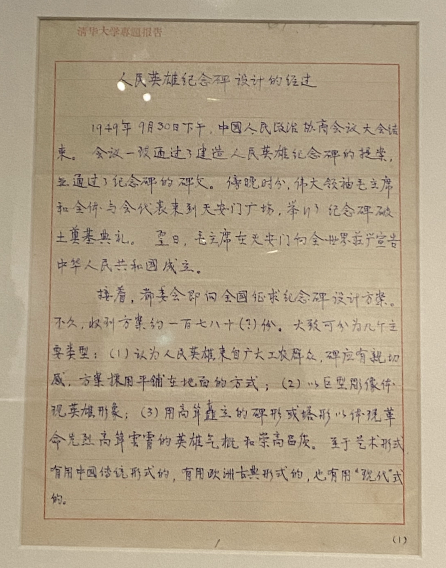 清华大学普通报告
人民英雄纪念碑设计的经过
1949年9月30日下午，中國人民政治协商会议大会结
束。会议一致通过了建造人民英雄纪念碑的提案，
并通过了纪念碑的碑文。傍晚时分，伟大领袖毛主席
和全体与会代表来到天安门广场，举行了纪念碑破
土奠基典礼。翌日，毛主席在天安门向全世界庄严宣告
中华人民共和國成立。
接着，都委会即向全国征求纪念碑设计方案。
不久，收到方案约一百七八十(?)份。大致可分为几个主
要类型：(1)认为人民英雄来自广大工农群众，碑应有親切
感，方案採用平铺在地面的方式；(2)以巨型彫像体
现英雄形象；(3)用高耸矗立的碑形或塔形以体现革
命先烈高耸雲霄的英雄气概和崇高品质。至于艺术形式
有用中国传统形式的，有用欧洲古典形式的，也有用“现代”式
的。
(1)